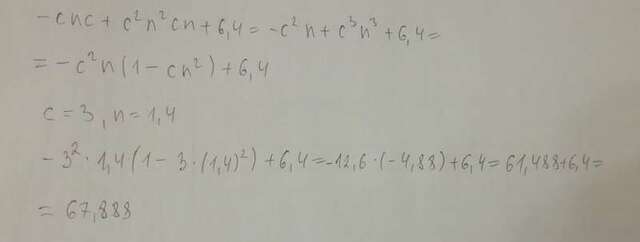 -cnc + c²n²cn + 6,4 = -c²n + c³n³ + 6,4 =
= -c²n (1 - cn²) + 6,4
c = 3, n = 1,4
-3² · 1,4 (1 - 3 · (1,4)²) + 6,4 = -12,6 · (-4,88) + 6,4 = 61,488 + 6,4 =
= 67,888